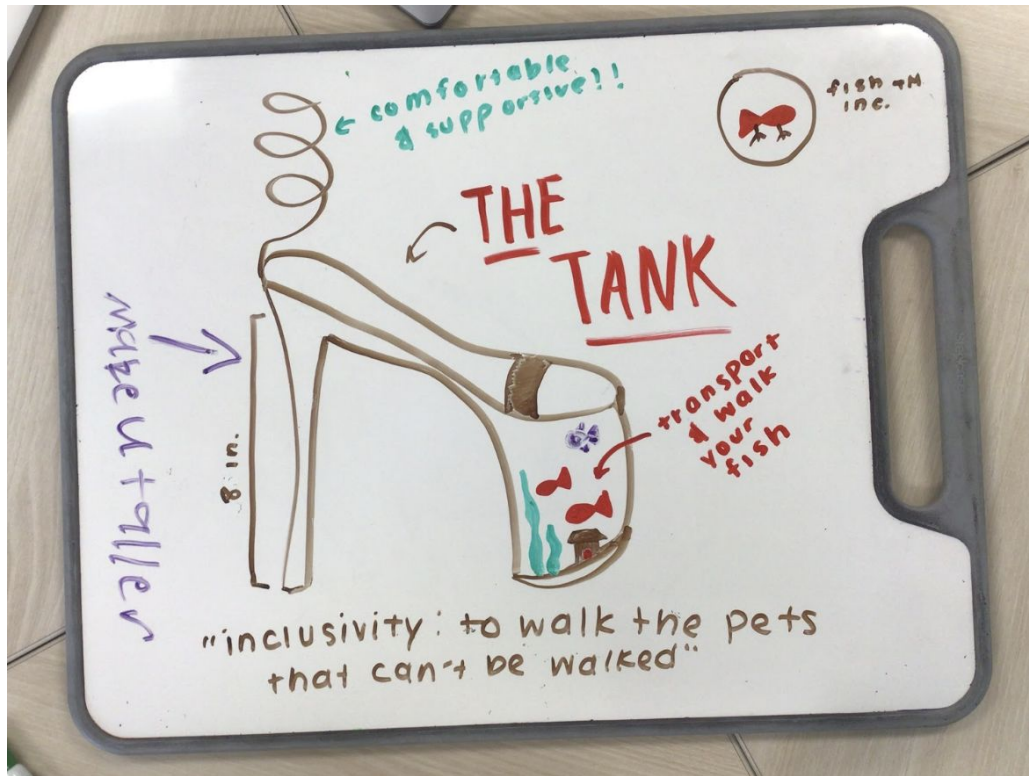 comfortable
& supporsive!!
fish TM
inc.
THE
TANK
make u taller
8 in.
transport
& walk
your
fish
"inclusivity: to walk the pets
that can't be walked"